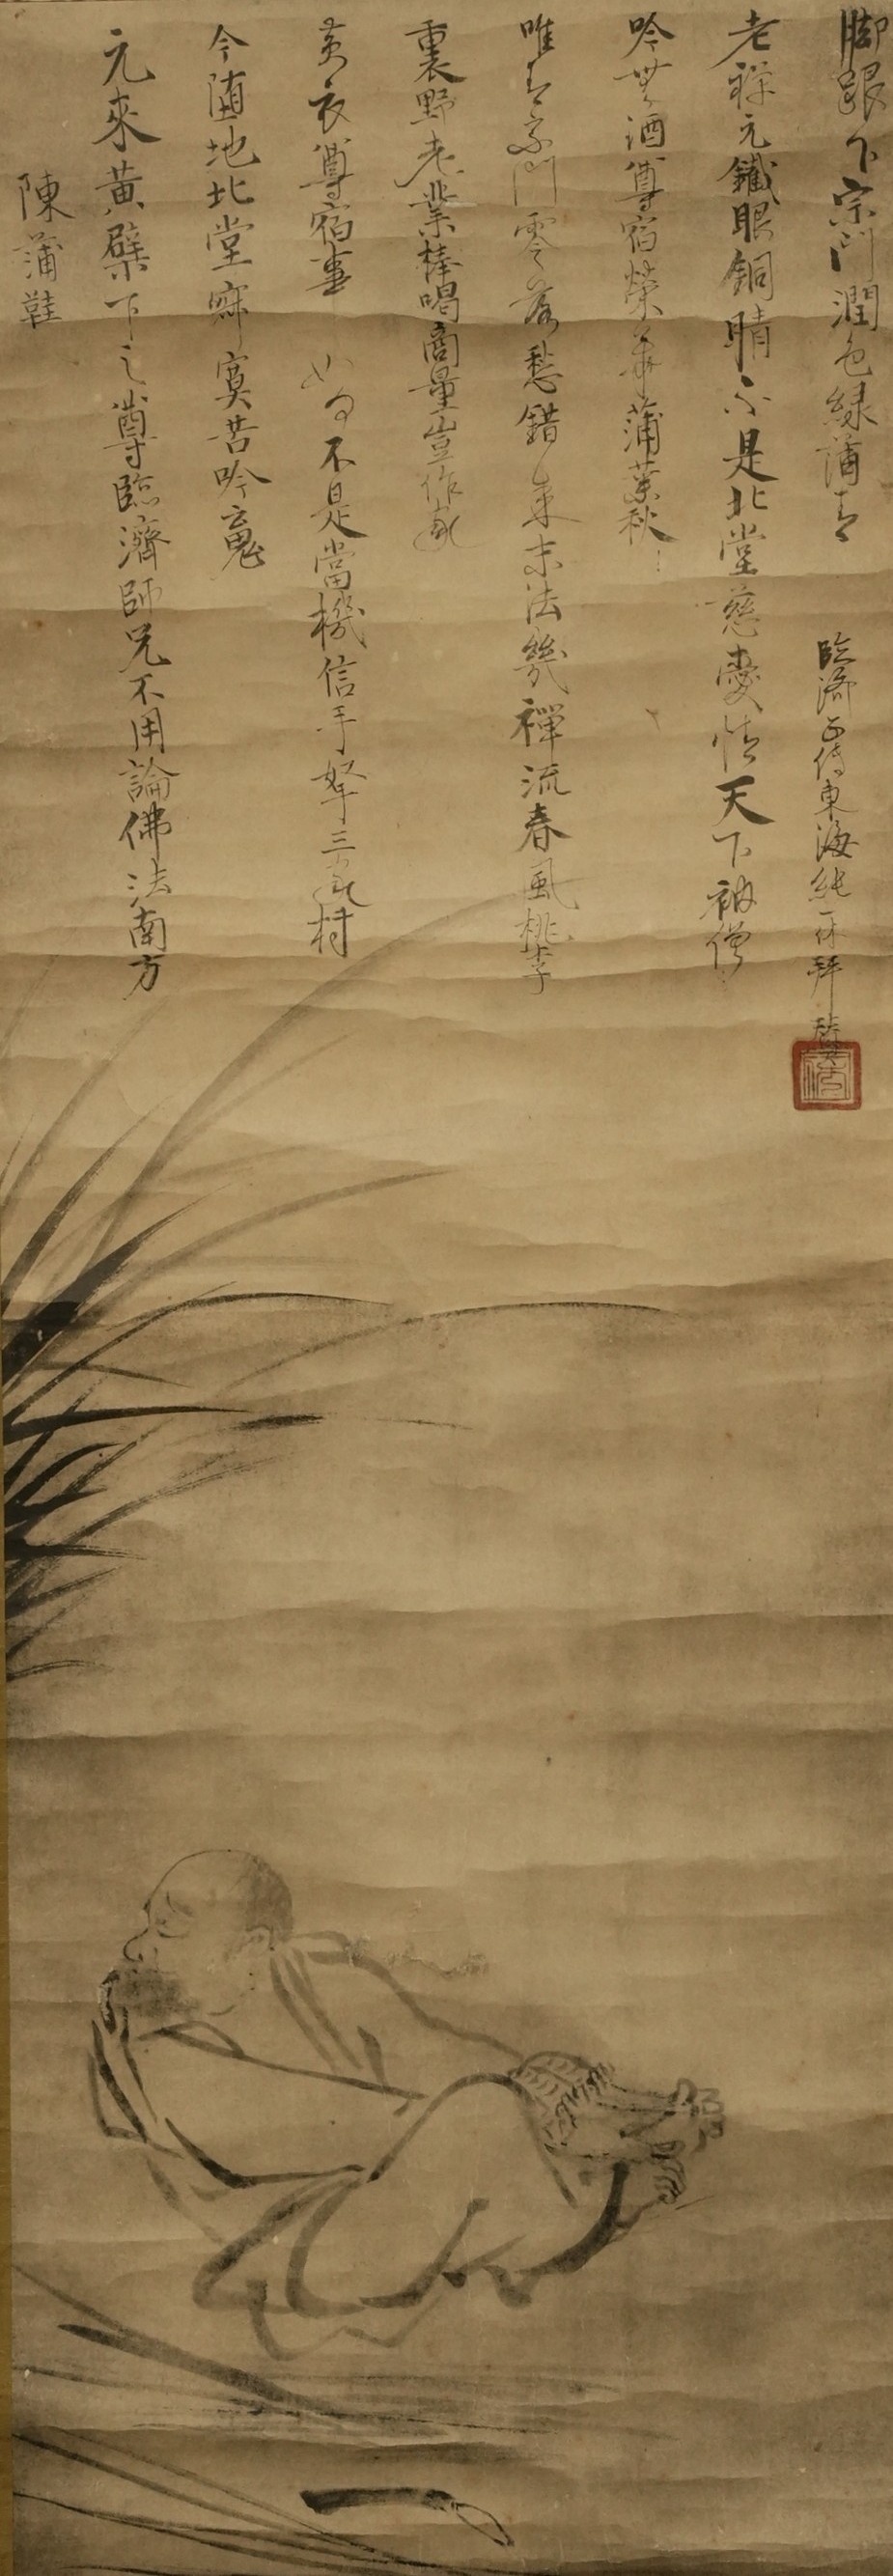 陳蒲鞋
元來黄檗下之尊臨濟師兄不用論佛法南方
今墮地北堂寂寞苦吟魂
黄衣尊宿事如何不是當機信手拏三家村
裏野老業棒喝商量豈作家
唯有宗門零落愁錯來末法幾禪流春風桃李
吟無酒尊宿榮華蒲葉秋
老禪元鐵眼銅睛不是北堂慈愛情天下衲僧
脚跟下宗門潤色緑蒲青
臨濟正傳東海純一休拜賛